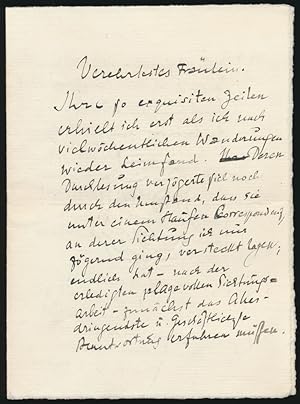 Verehrtestes Fräulein.
Ihre so exquisiten Zeilen
erhielt ich erst als ich nach
vielwöchentlichen Wanderungen
wieder heimfand. Deren
Durchlesung verzögerte sich noch
durch den Umstand, dass sie
unter einem Haufen Correspondenz
an deren Sichtung ich nur
zögernd ging, versteckt lagen;
endlich hat – nach der
erledigten plagevollen Sichtungs=
arbeit – zunächst das Aller-
dringendste u. Geschäftliche
Beantwortung erfahren müssen.